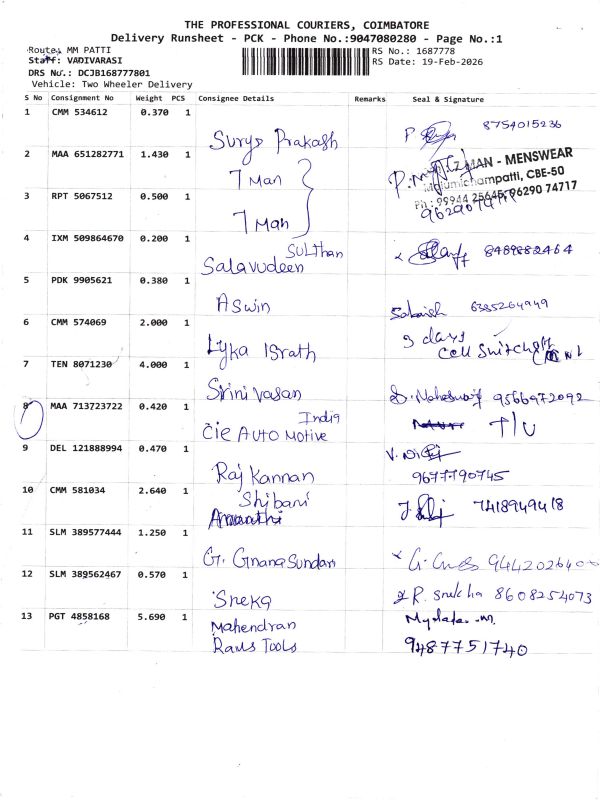 THE PROFESSIONAL COURIERS, COIMBATORE
Delivery Runsheet - PCK - Phone No.:9047080280 - Page No.:1
Route: MM PATTI
RS No.: 1687778
Staff: VADIVARASI
RS Date: 19-Feb-2026
DRS No.: DCJB168777801
Vehicle: Two Wheeler Delivery
S No Consignment No Weight PCS Consignee Details Remarks Seal & Signature
1 CMM 534612 0.370 1
Surya Prakash P. 8754015236
2 MAA 651282771 1.430 1
7 Man
MAN - MENSWEAR
CBE-50
3 RPT 5067512 0.500 1
Ph : 99944 25645, 96290 74717
7 Man
4 IXM 509864670 0.200 1
Sulthan
Salavudeen 8489882464
5 PDK 9905621 0.380 1
Aswin 6385264949
6 CMM 574069 2.000 1
Lyka Israth 3 days
Cell Switch off
7 TEN 8071230 4.000 1
Srini Vasan 9566972092
8 MAA 713723722 0.420 1
India
Cie Auto Motive T/U
9 DEL 121888994 0.470 1
Raj Kannan 9677790745
10 CMM 581034 2.640 1
Shibani 7418949418
11 SLM 389577444 1.250 1
G. Gnana Sundari G.
12 SLM 389562467 0.570 1
Sneka R. Snekha 8608254073
13 PGT 4858168 5.690 1
Mahendran
Rams Tools 9487751740